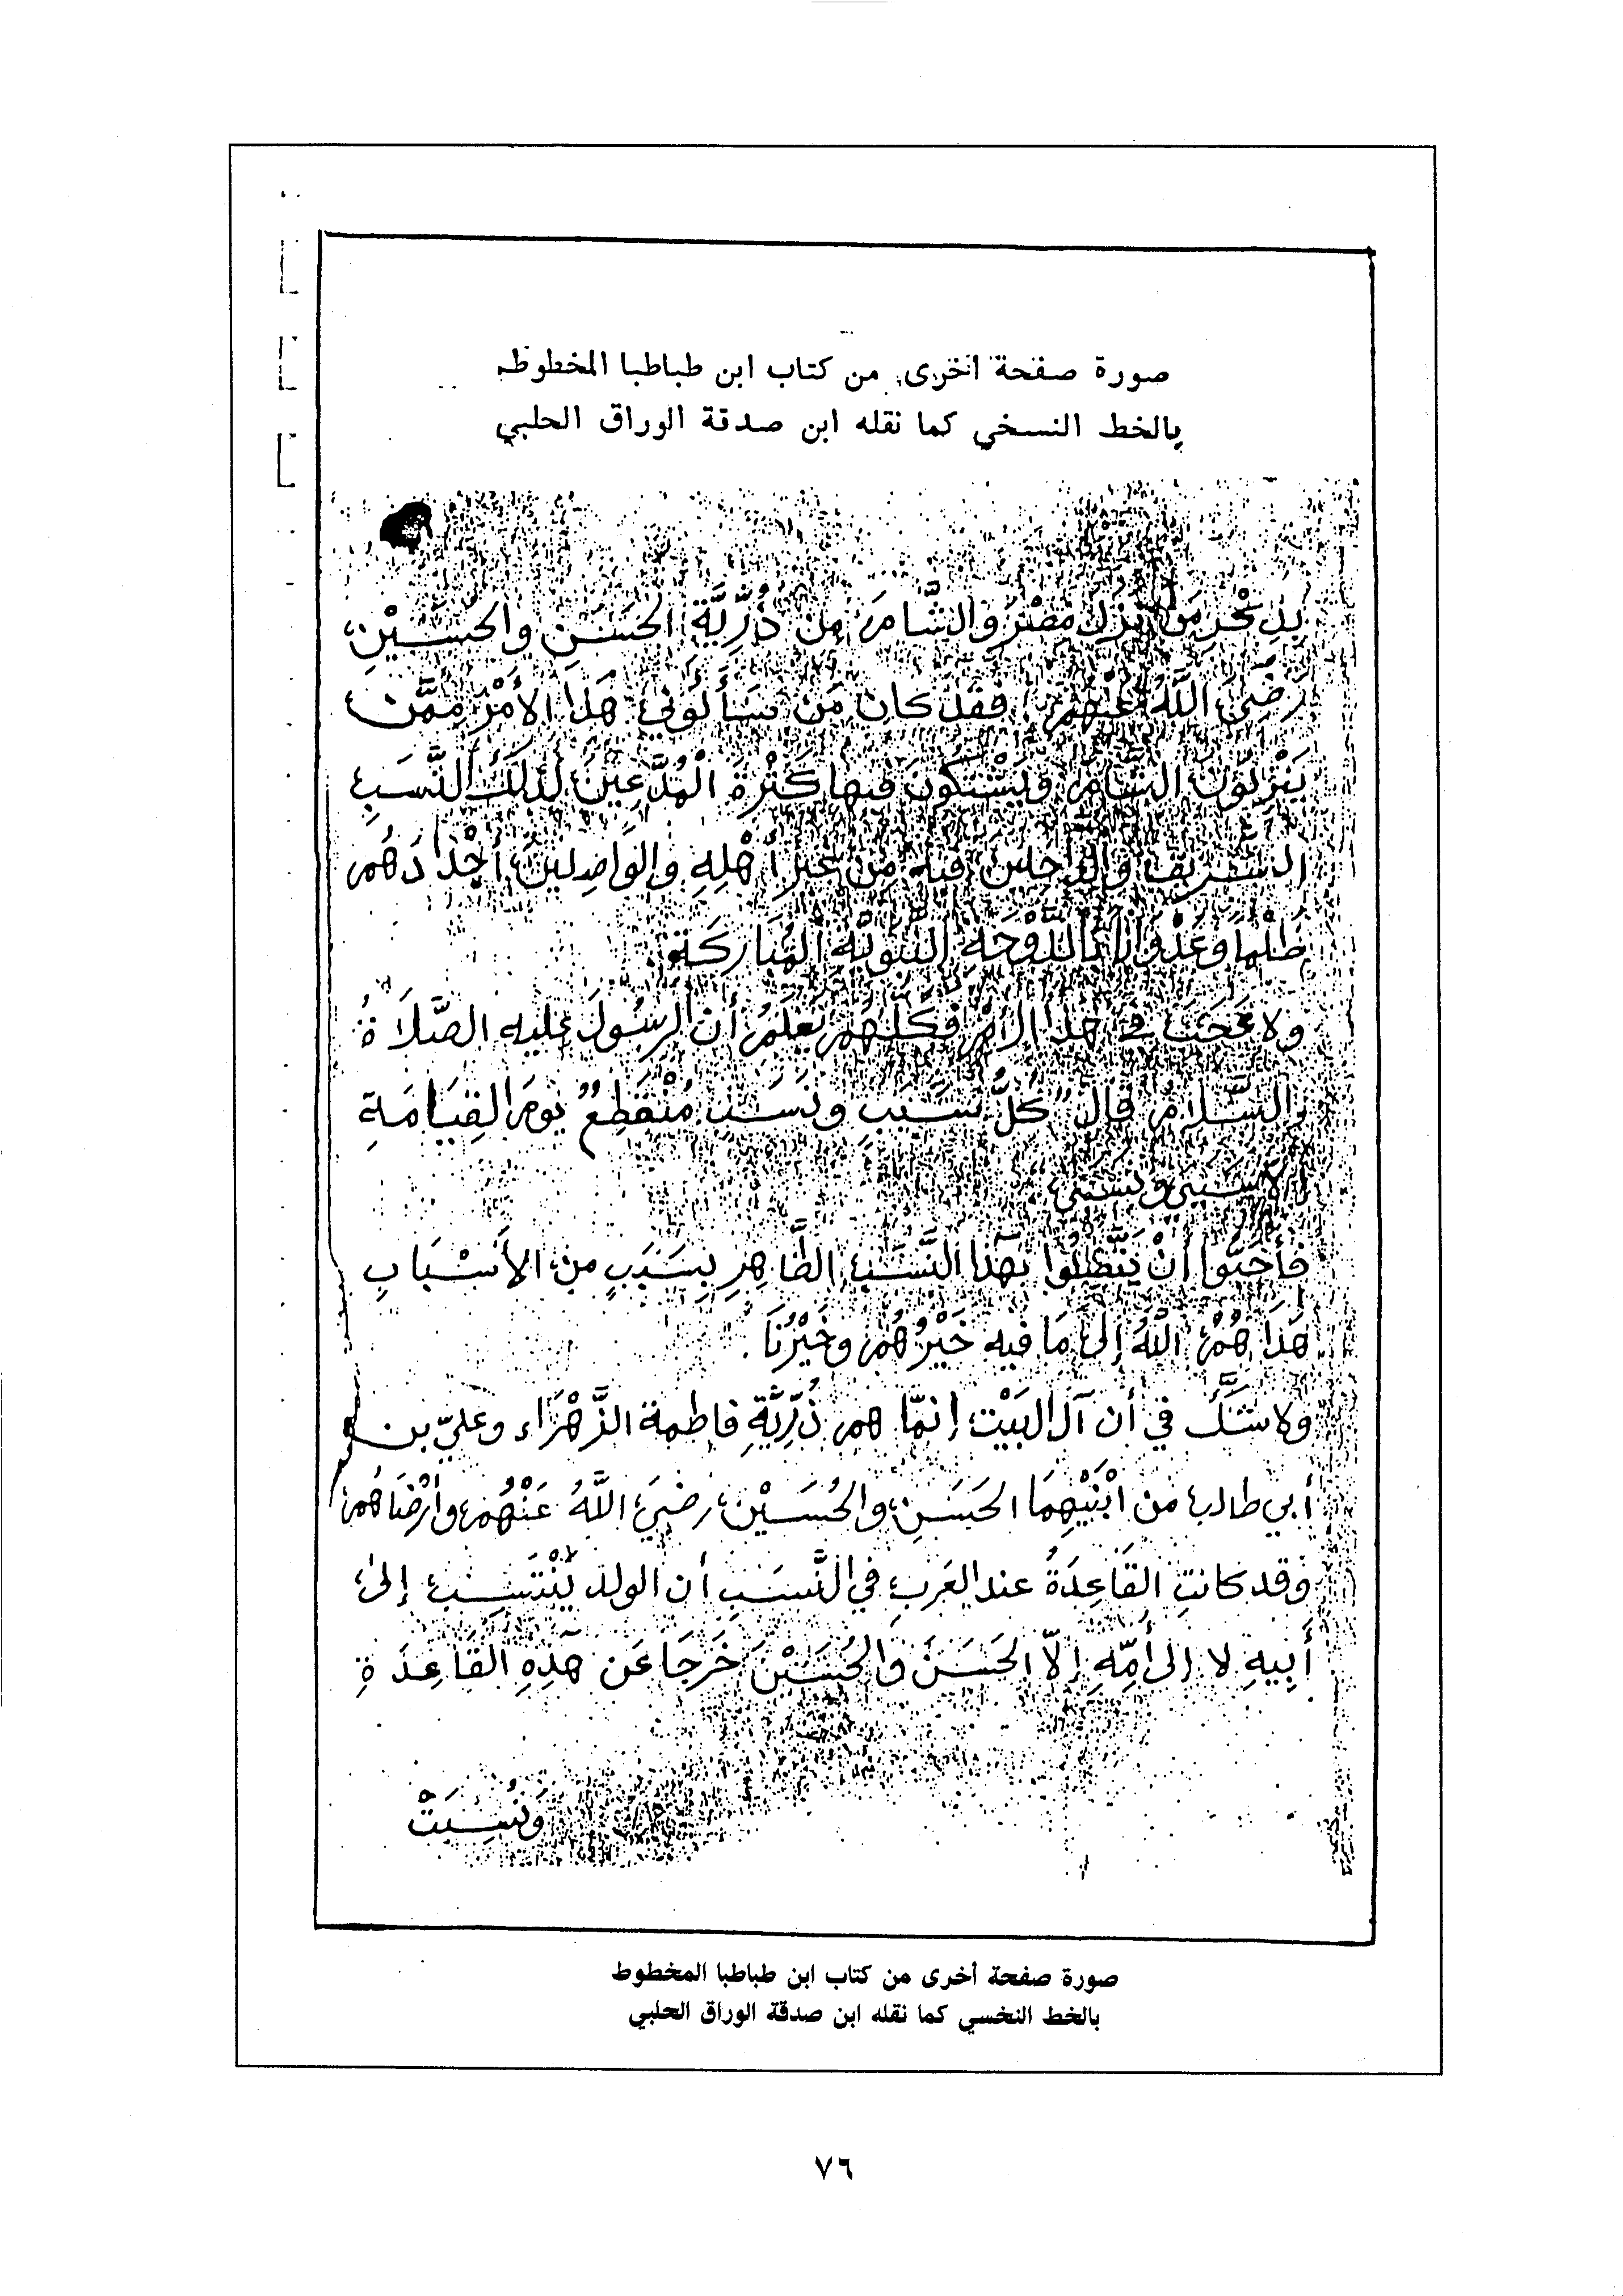 صورة صفحة أخرى من كتاب ابن طباطبا المخطوطه
بالخط النسخي كما نقله ابن صدقة الوراق الحلبي
من نزل مصر والشام من ذُرِّيَّةِ الحَسَنِ والحُسَيْنِ
رَضِيَ اللَّهُ عَنْهُمْ فقد كان مَن سَأَلُونِي هَذَا الأَمْرَ مِمَّن
يَنْزِلُونَ الشَّامَ وَيَشْتَكُونَ فيها كَثْرَةَ الْمُدَّعِينَ لِذَلِكَ النَّسَبِ
الشريف والداخلين فيه من غير أَهْلِهِ والوَاصِلينَ أجْدَادَهُم
ظُلْمًا وعُدْوَانًا بالدَّوْحَةِ النَّبَوِيَّةِ المُبَارَكَةِ.
ولا عَجَبَ في هذا الأمْرِ فكلهم يَعْلَمُ أن الرسُولَ عليه الصَّلَاةُ
والسَّلَامُ قال كُلُّ سَبَبٍ ونَسَبٍ مُنْقَطِعٌ يَومَ القِيَامَةِ
إلا سَبَبِي ونَسَبِي
فأحَبُّوا أنْ يَتَّصِلُوا بهَذا النَّسَبِ الطَّاهِرِ بِسَبَبٍ مِنَ الأَسْبَابِ
هَدَاهُمُ اللَّهُ إلى مَا فيهِ خَيْرُهُمْ وخَيْرُنَا.
ولا شَكَّ في أن آلَ البَيْتِ إنَّمَا هم ذُرِّيَّةِ فاطمة الزَّهْرَاء وعليّ بن
أبي طالب من ابْنَيْهِمَا الحَسَنِ والحُسَيْنِ رضيَ اللَّهُ عَنْهُم وأرْضَاهُم
وقد كانتِ القَاعِدَةُ عند العَرَبِ في النَّسَبِ أن الولد يَنْتَسِبُ إلى
أَبِيهِ لا إلى أُمِّهِ إلّا الحَسَنَ وَالحُسَيْنَ خَرَجَا عَن هَذِهِ القَاعِدَةِ
وَنُسِبَتْ
صورة صفحة أخرى من كتاب ابن طباطبا المخطوط
بالخط النخسي كما نقله ابن صدقة الوراق الحلبي
٧٦